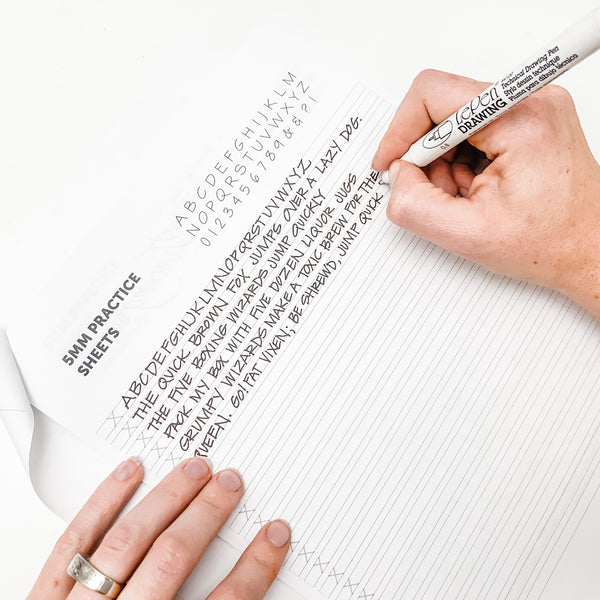 5MM PRACTICE
SHEETS
ABCDEFGHIJKLM
NOPQRSTUVWXYZ
0123456789&@?!
ABCDEFGHIJKLMNOPQRSTUVWXYZ
THE QUICK BROWN FOX JUMPS OVER A LAZY DOG.
THE FIVE BOXING WIZARDS JUMP QUICKLY
PACK MY BOX WITH FIVE DOZEN LIQUOR JUGS
GRUMPY WIZARDS MAKE A TOXIC BREW FOR THE
QUEEN. GO! FAT VIXEN; BE SHREWD, JUMP QUICK
DRAWING
Technical Drawing Pen
Stylo dessin technique
Pluma para dibujo técnico
0.8